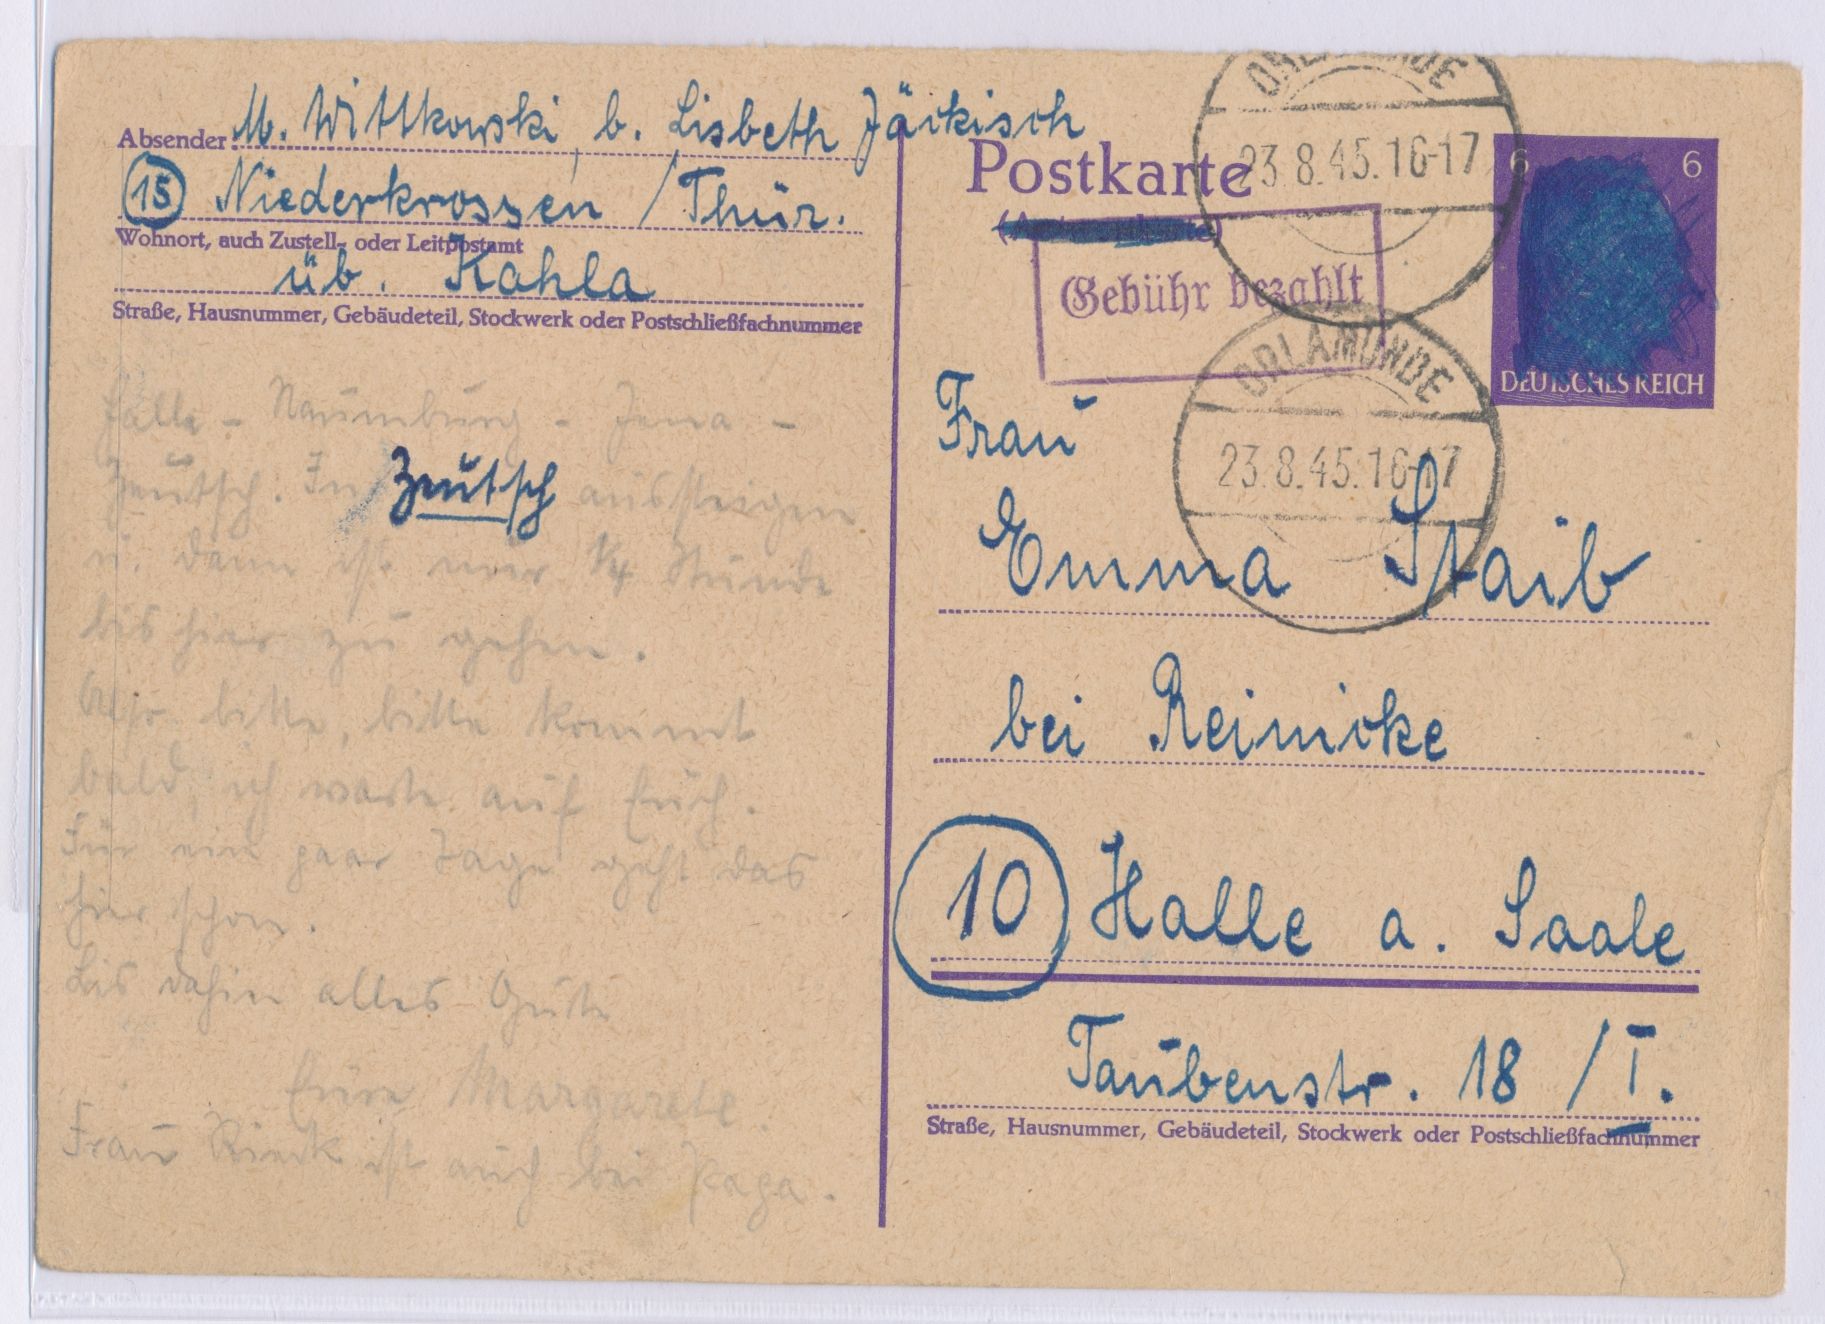 Absender: M. Wittkowski, b. Lisbeth Jäckisch
(15) Niederkrossen / Thür.
Wohnort, auch Zustell- oder Leitpostamt
üb. Kahla
Straße, Hausnummer, Gebäudeteil, Stockwerk oder Postschließfachnummer
Halle - Naumburg - Jena -
Zeutsch. In Zeutsch aussteigen
u. dann ist nur 1/4 Stunde
bis hier zu gehen.
Also bitte, bitte kommt
bald, ich warte auf Euch.
Für ein paar Tage geht das
hier schon.
Bis dahin alles Gute
Eure Margarete.
Frau ist auch bei Papa.
Postkarte
ORLAMÜNDE
23.8.45.16-17
6
6
DEUTSCHES REICH
Gebühr bezahlt
ORLAMÜNDE
23.8.45.16-17
Frau
Emma Staib
bei Reinicke
(10) Halle a. Saale
Taubenstr. 18 / I.
Straße, Hausnummer, Gebäudeteil, Stockwerk oder Postschließfachnummer